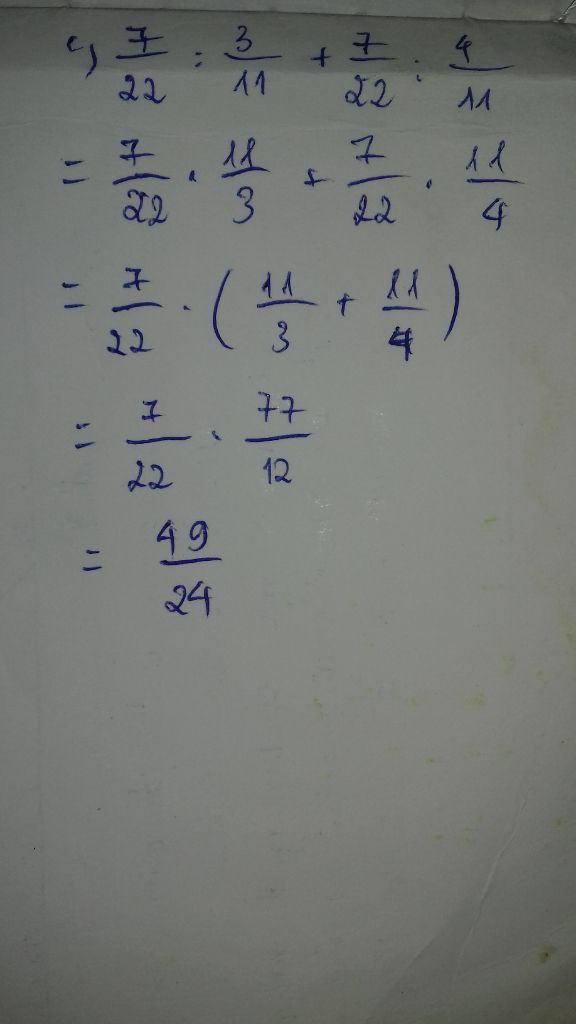 c) 7/22 : 3/11 + 7/22 : 4/11
= 7/22 . 11/3 + 7/22 . 11/4
= 7/22 . ( 11/3 + 11/4 )
= 7/22 . 77/12
= 49/24